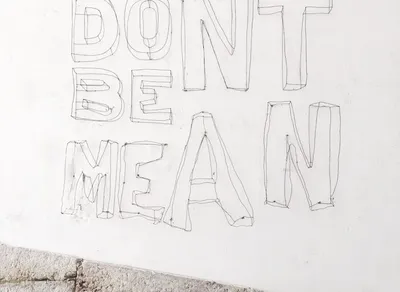 DONT
BE
MEAN